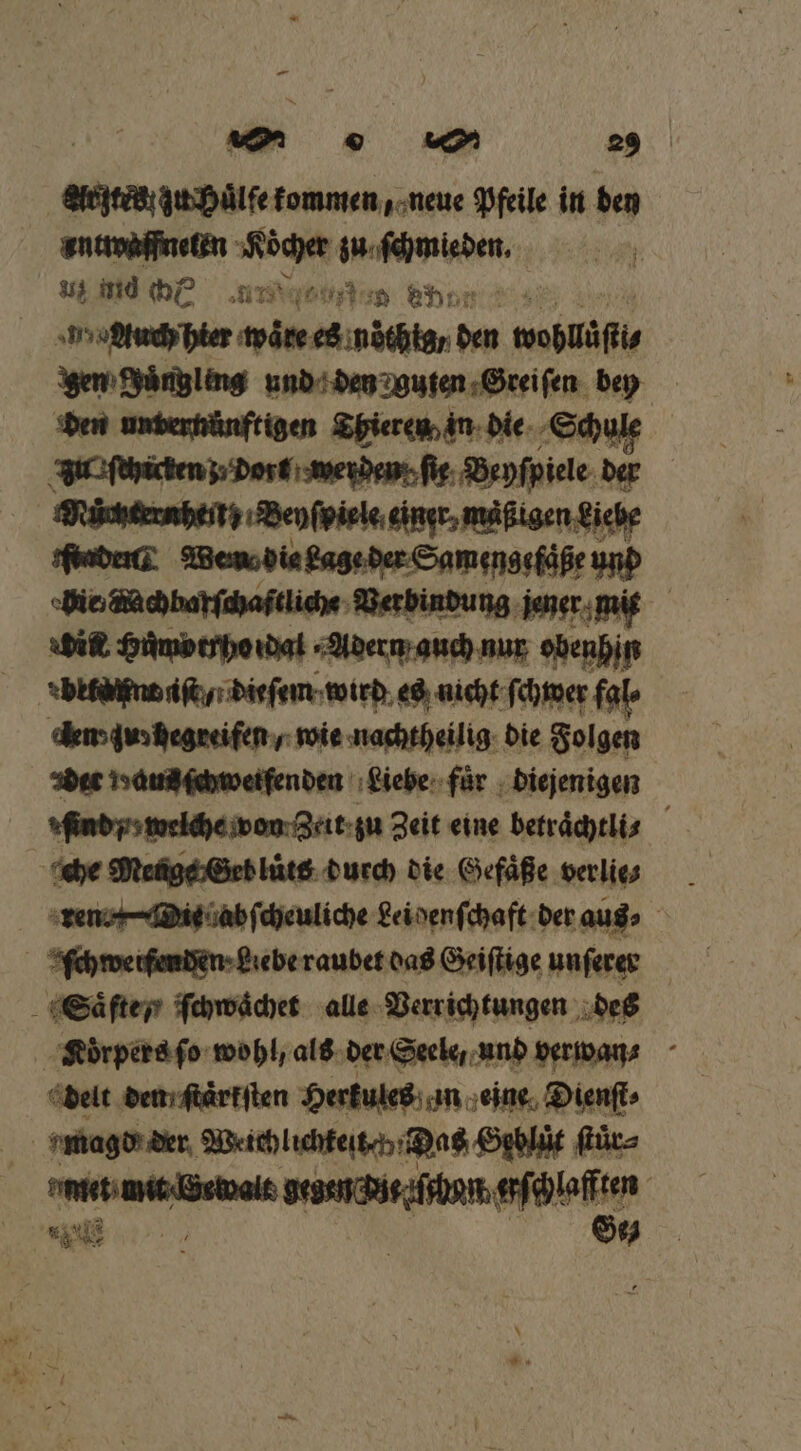 29
Arztes zu Hůlfe kommen, neue Pfeile in den
entwaffneten Kőcher zu ſchmieden.
Auch hier wåre es nőthig, den wohllůſti⸗
gen Jůngling und den guten Greiſen bey
den unvernůnftigen Thieren in die Schule
zu ſchicken; dort werden ſie Beyſpiele der
Nůchternheit, Beyſpiele einer måßigen Liebe
finden. Wem die Lage der Samengefåße und
die nachbarſchaftliche Verbindung jener mit
den Håmorrhoidal-Adern auch nur obenhin
bekannt iſt, dieſem wird es nicht ſchwer fal⸗
len zu begreifen, wie nachtheilig die Folgen
der ausſchweifenden Liebe fůr diejenigen
ſind, welche von Zeit zu Zeit eine betråchtli⸗
che Menge Geblůts durch die Gefåße verlie⸗
ren. — Die abſcheuliche Leidenſchaft der aus⸗
ſchweifenden Liebe raubet das Geiſtige unſerer
Såfte, ſchwåchet alle Verrichtungen des
Kőrpers ſo wohl, als der Seele, und verwan⸗
delt den ſtårkſten Herkules in eine Dienſt⸗
magd der Weichlichkeit. Das Geblůt ſtůr⸗
met mit Gewalt gegen die ſchon erſchlafften
Ge⸗